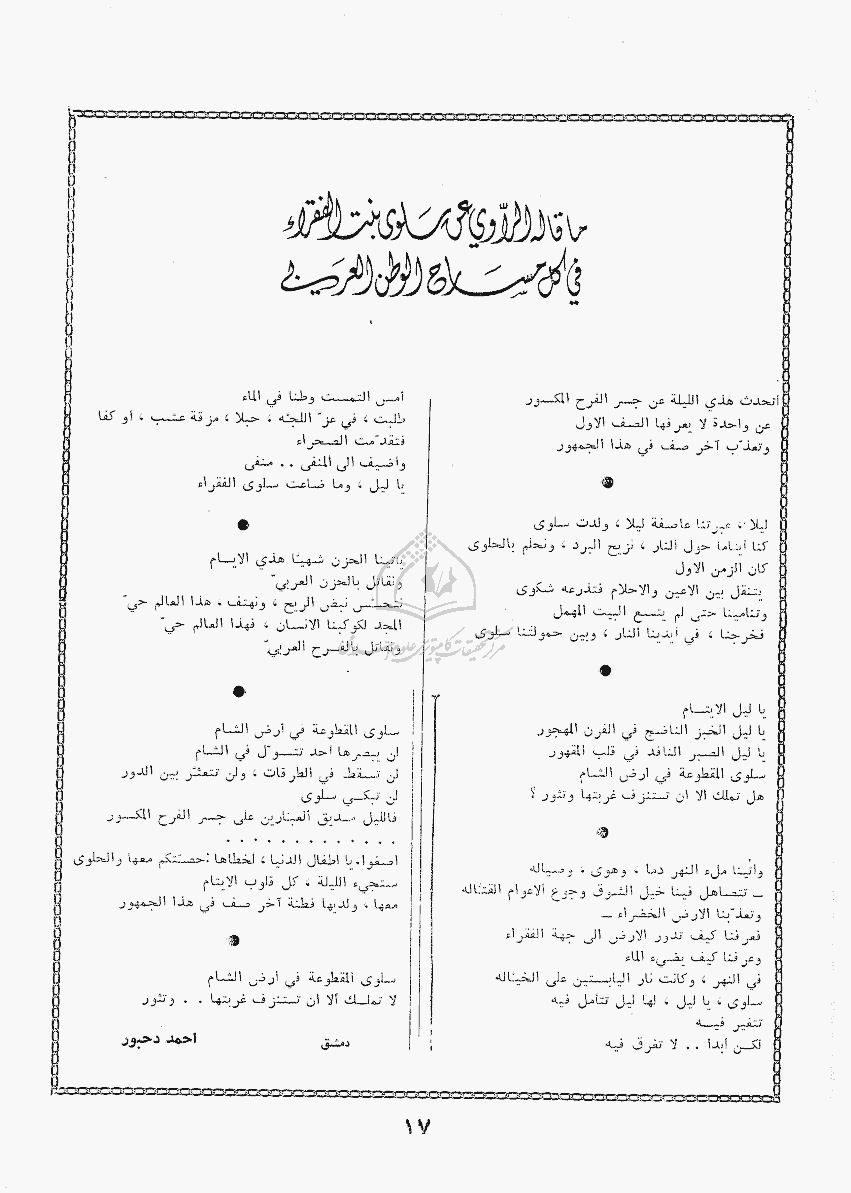 ما قاله الراوي عن سلوى بنت الفقراء
في كل مسارح الوطن العربي
أتحدث هذي الليلة عن جسر الفرح المكسور
عن واحدة لا يعرفها الصف الاول
وتعذّب آخر صف في هذا الجمهور
ليلا ، عبرتنا عاصفة ليلا ، ولدت سلوى
كنا أيتاما حول النار ، نزيح البرد ، ونحلم بالحلوى
كان الزمن الاول
يتنقل بين الاعين والاحلام فتذرعه شكوى
وتنامينا حتى لم يتسع البيت المهمل
فخرجنا ، في أيدينا النار ، وبين حمولتنا سلوى
يا ليل الايتام
يا ليل الخبز الناضج في الفرن المهجور
يا ليل الصبر النافد في قلب المقهور
سلوى المقطوعة في ارض الشام
هل تملك الا ان تستنزف غربتها وتثور ؟
وأتينا ملء النهر دما ، وهوى ، وصياله
ـ تتصاهل فينا خيل الشوق وجوع الاعوام القتّاله
وتعذبنا الارض الخضراء ـ
فعرفنا كيف تدور الارض الى جهة الفقراء
وعرفنا كيف يضيء الماء
في النهر ، وكانت نار اليابستين على الخيّاله
سلوى ، يا ليل ، لها ليل تتأمل فيه
تتغير فيه
لكن أبدا . . لا تغرق فيه
أمس التمست وطنا في الماء
طلبت ، في عزّ اللجّه ، حبلا ، مزقة عشب ، أو كفا
فتقدّمت الصحراء
وأضيف الى المنفى . . منفى
يا ليل ، وما ضاعت سلوى الفقراء
يأتينا الحزن شهيّا هذي الايام
ونقاتل بالحزن العربيّ
نتحسّس نبض الريح ، ونهتف ، هذا العالم حيّ
المجد لكوكبنا الانسان ، فهذا العالم حيّ
ونقاتل بالفرح العربيّ
سلوى المقطوعة في أرض الشام
لن يبصرها أحد تتسوّل في الشام
لن تسقط في الطرقات ، ولن تتعثّر بين الدور
لن تبكي سلوى
فالليل صديق العينارين على جسر الفرح المكسور
. . . . . . . . . . . . .
اصغوا، يا اطفال الدنيا ، لخطاها :حصتكم معها والحلوى
ستجيء الليلة ، كل قلوب الايتام
معها ، ولديها فطنة آخر صف في هذا الجمهور
سلوى المقطوعة في أرض الشام
لا تملك ألا ان تستنزف غربتها . . وتثور
دمشق
احمد دحبور
١٧